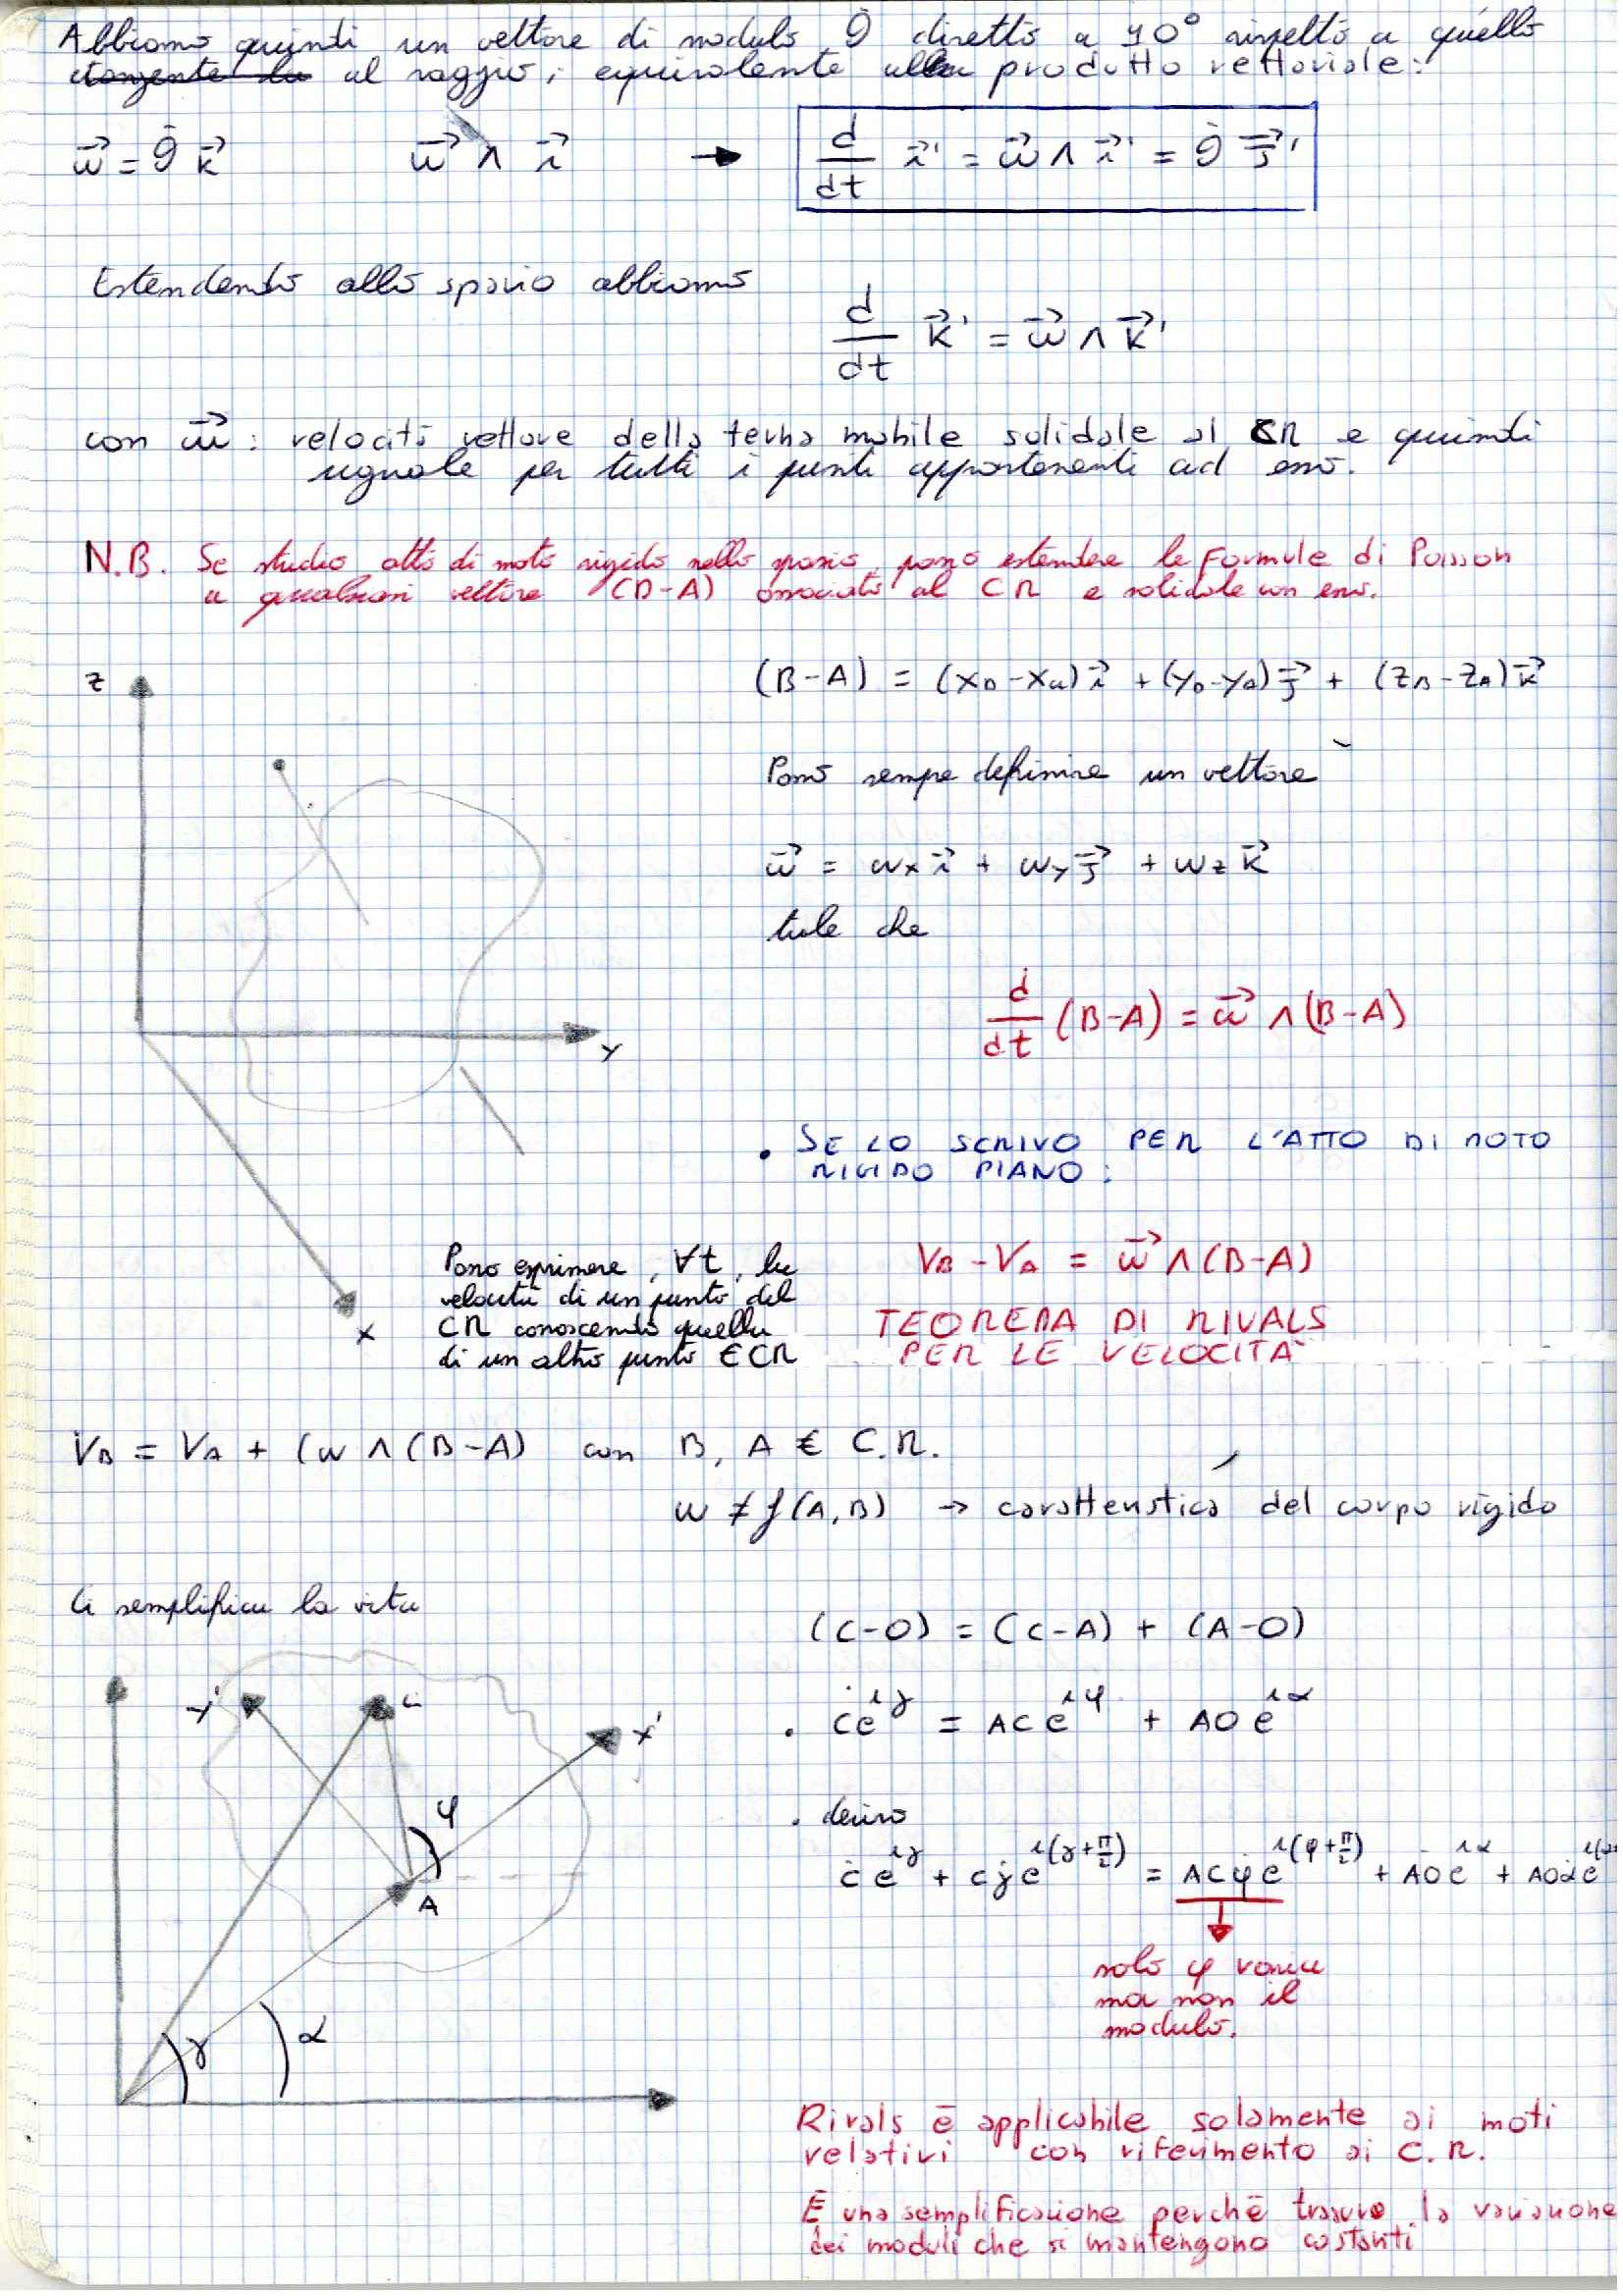 Abbiamo quindi un vettore di modulo θ̇ diretto a 90° rispetto a quello
tangente la al raggio; equivalente alla prodotto vettoriale:
ω⃗ = θ̇ k⃗    ω⃗ ∧ i⃗    →    d/dt i⃗' = ω⃗ ∧ i⃗' = θ̇ j⃗'
Estendendo allo spazio abbiamo
d/dt k⃗' = ω⃗ ∧ k⃗'
con ω⃗: velocità vettore della terna mobile solidale al CR e quindi
uguale per tutti i punti appartenenti ad esso.
N.B. Se studio atto di moto rigido nello spazio, posso estendere le Formule di Poisson
a qualsiasi vettore (B-A) associato al CR e solidale con esso.
(B-A) = (xB - xA) i⃗ + (yB - yA) j⃗ + (zB - zA) k⃗
z
Posso sempre definire un vettore
ω⃗ = ωx i⃗ + ωy j⃗ + ωz k⃗
tale che
d/dt (B-A) = ω⃗ ∧ (B-A)
y
• SE LO SCRIVO PER L'ATTO DI MOTO
RIGIDO PIANO:
x
Posso esprimere, ∀t, la
velocità di un punto del
CR conoscendo quella
di un altro punto ∈ CR
VB - VA = ω⃗ ∧ (B-A)
TEOREMA DI RIVALS
PER LE VELOCITÀ
VB = VA + (ω ∧ (B-A) con B, A ∈ C.R.
ω ≠ f(A,B) → caratteristica del corpo rigido
Ci semplifica la vita
(C-O) = (C-A) + (A-O)
y'
C
x'
• c e^{iγ} = AC e^{iφ} + AO e^{iα}
φ
• derivo
ċ e^{iγ} + cγ̇ e^{i(γ+π/2)} = ACφ̇ e^{i(φ+π/2)} + ȦO e^{iα} + AOα̇ e
A
solo φ varia
ma non il
modulo.
γ
α
Rivals è applicabile solamente ai moti
relativi con riferimento ai C.R.
È una semplificazione perchè trascuro la variazione
dei moduli che si mantengono costanti